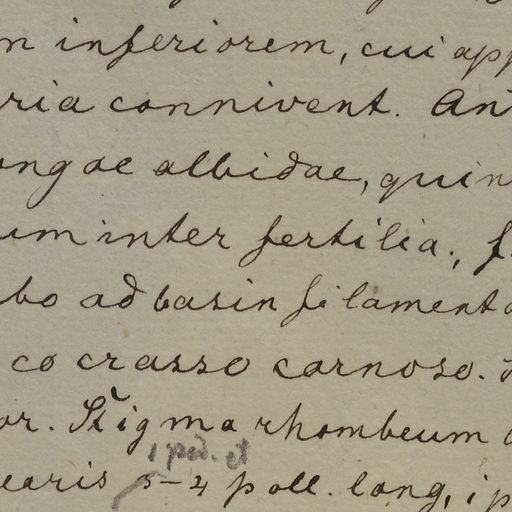 m inferiorem, cui app
ria connivent. An
ongae albidae, quin
um inter fertilia., f
bo ad basin filamento
co crasso carnoso.
or. Stigma rhombeum
1 ped. et
earis 3-4 poll. long, 1 p